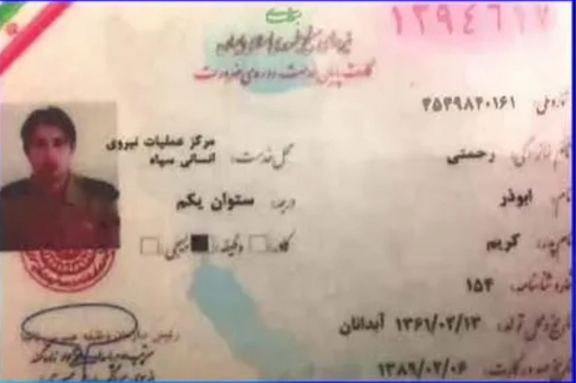 ۱۳۹٤٦۱۷
نیروهای مسلح جمهوری اسلامی ایران
کارت پایان خدمت دوره‌ی ضرورت
شماره ملی:
نام خانوادگی: رحمتی
محل خدمت: مرکز عملیات نیروی
انسانی سپاه
نام: ابوذر
درجه: ستوان یکم
نام پدر: کریم
کادر: وظیفه: بسیجی:
شماره شناسنامه: ۱۵۴
تاریخ و محل تولد: ۱۳۶۱/۰۲/۱۳ آبدانان
تاریخ صدور کارت: ۱۳۸۹/۰۲/۰۶
رئیس سازمان وظیفه عمومی